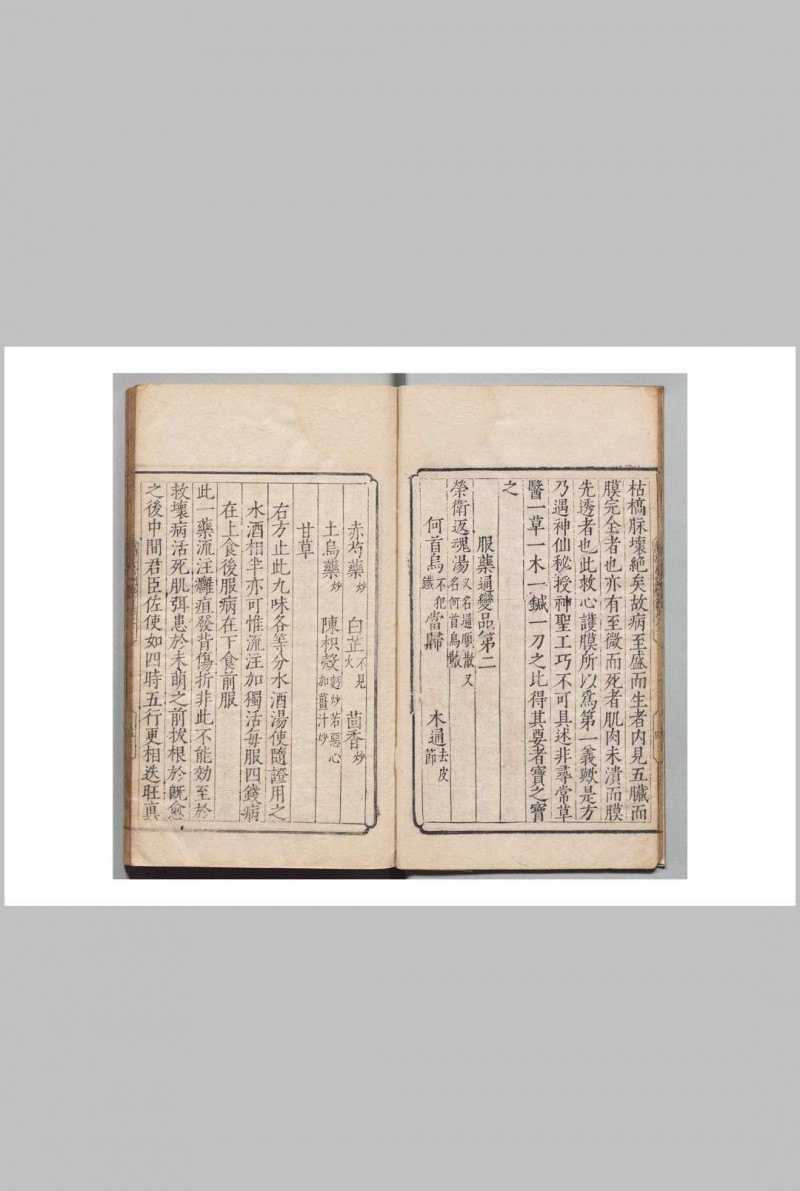 枯槁脉壞絶矣故病至盛而生者内見五臟而
膜完全者也亦有至微而死者肌肉未潰而膜
先透者也此救心護膜所以為第一義歟是方
乃遇神仙秘授神聖工巧不可具述非尋常草
醫一草一木一鍼一刀之比得其要者寳之寳
之
服藥通變品第二
榮衛返魂湯又名通順散又名何首烏散
何首烏不犯鐵 當歸 木通去皮節
赤芍藥炒 白芷不見火 茴香炒
土烏藥炒 陳枳殼麩炒若惡心加薑汁炒
甘草
右方止此九味各等分水酒湯使隨證用之
水酒相半亦可惟流注加獨活每服四錢病
在上食後服病在下食前服
此一藥流注癰疽發背傷折非此不能効至於
救壞病活死肌弭患於未萌之前拔根於既愈
之後中間君臣佐使如四時五行更相迭旺真